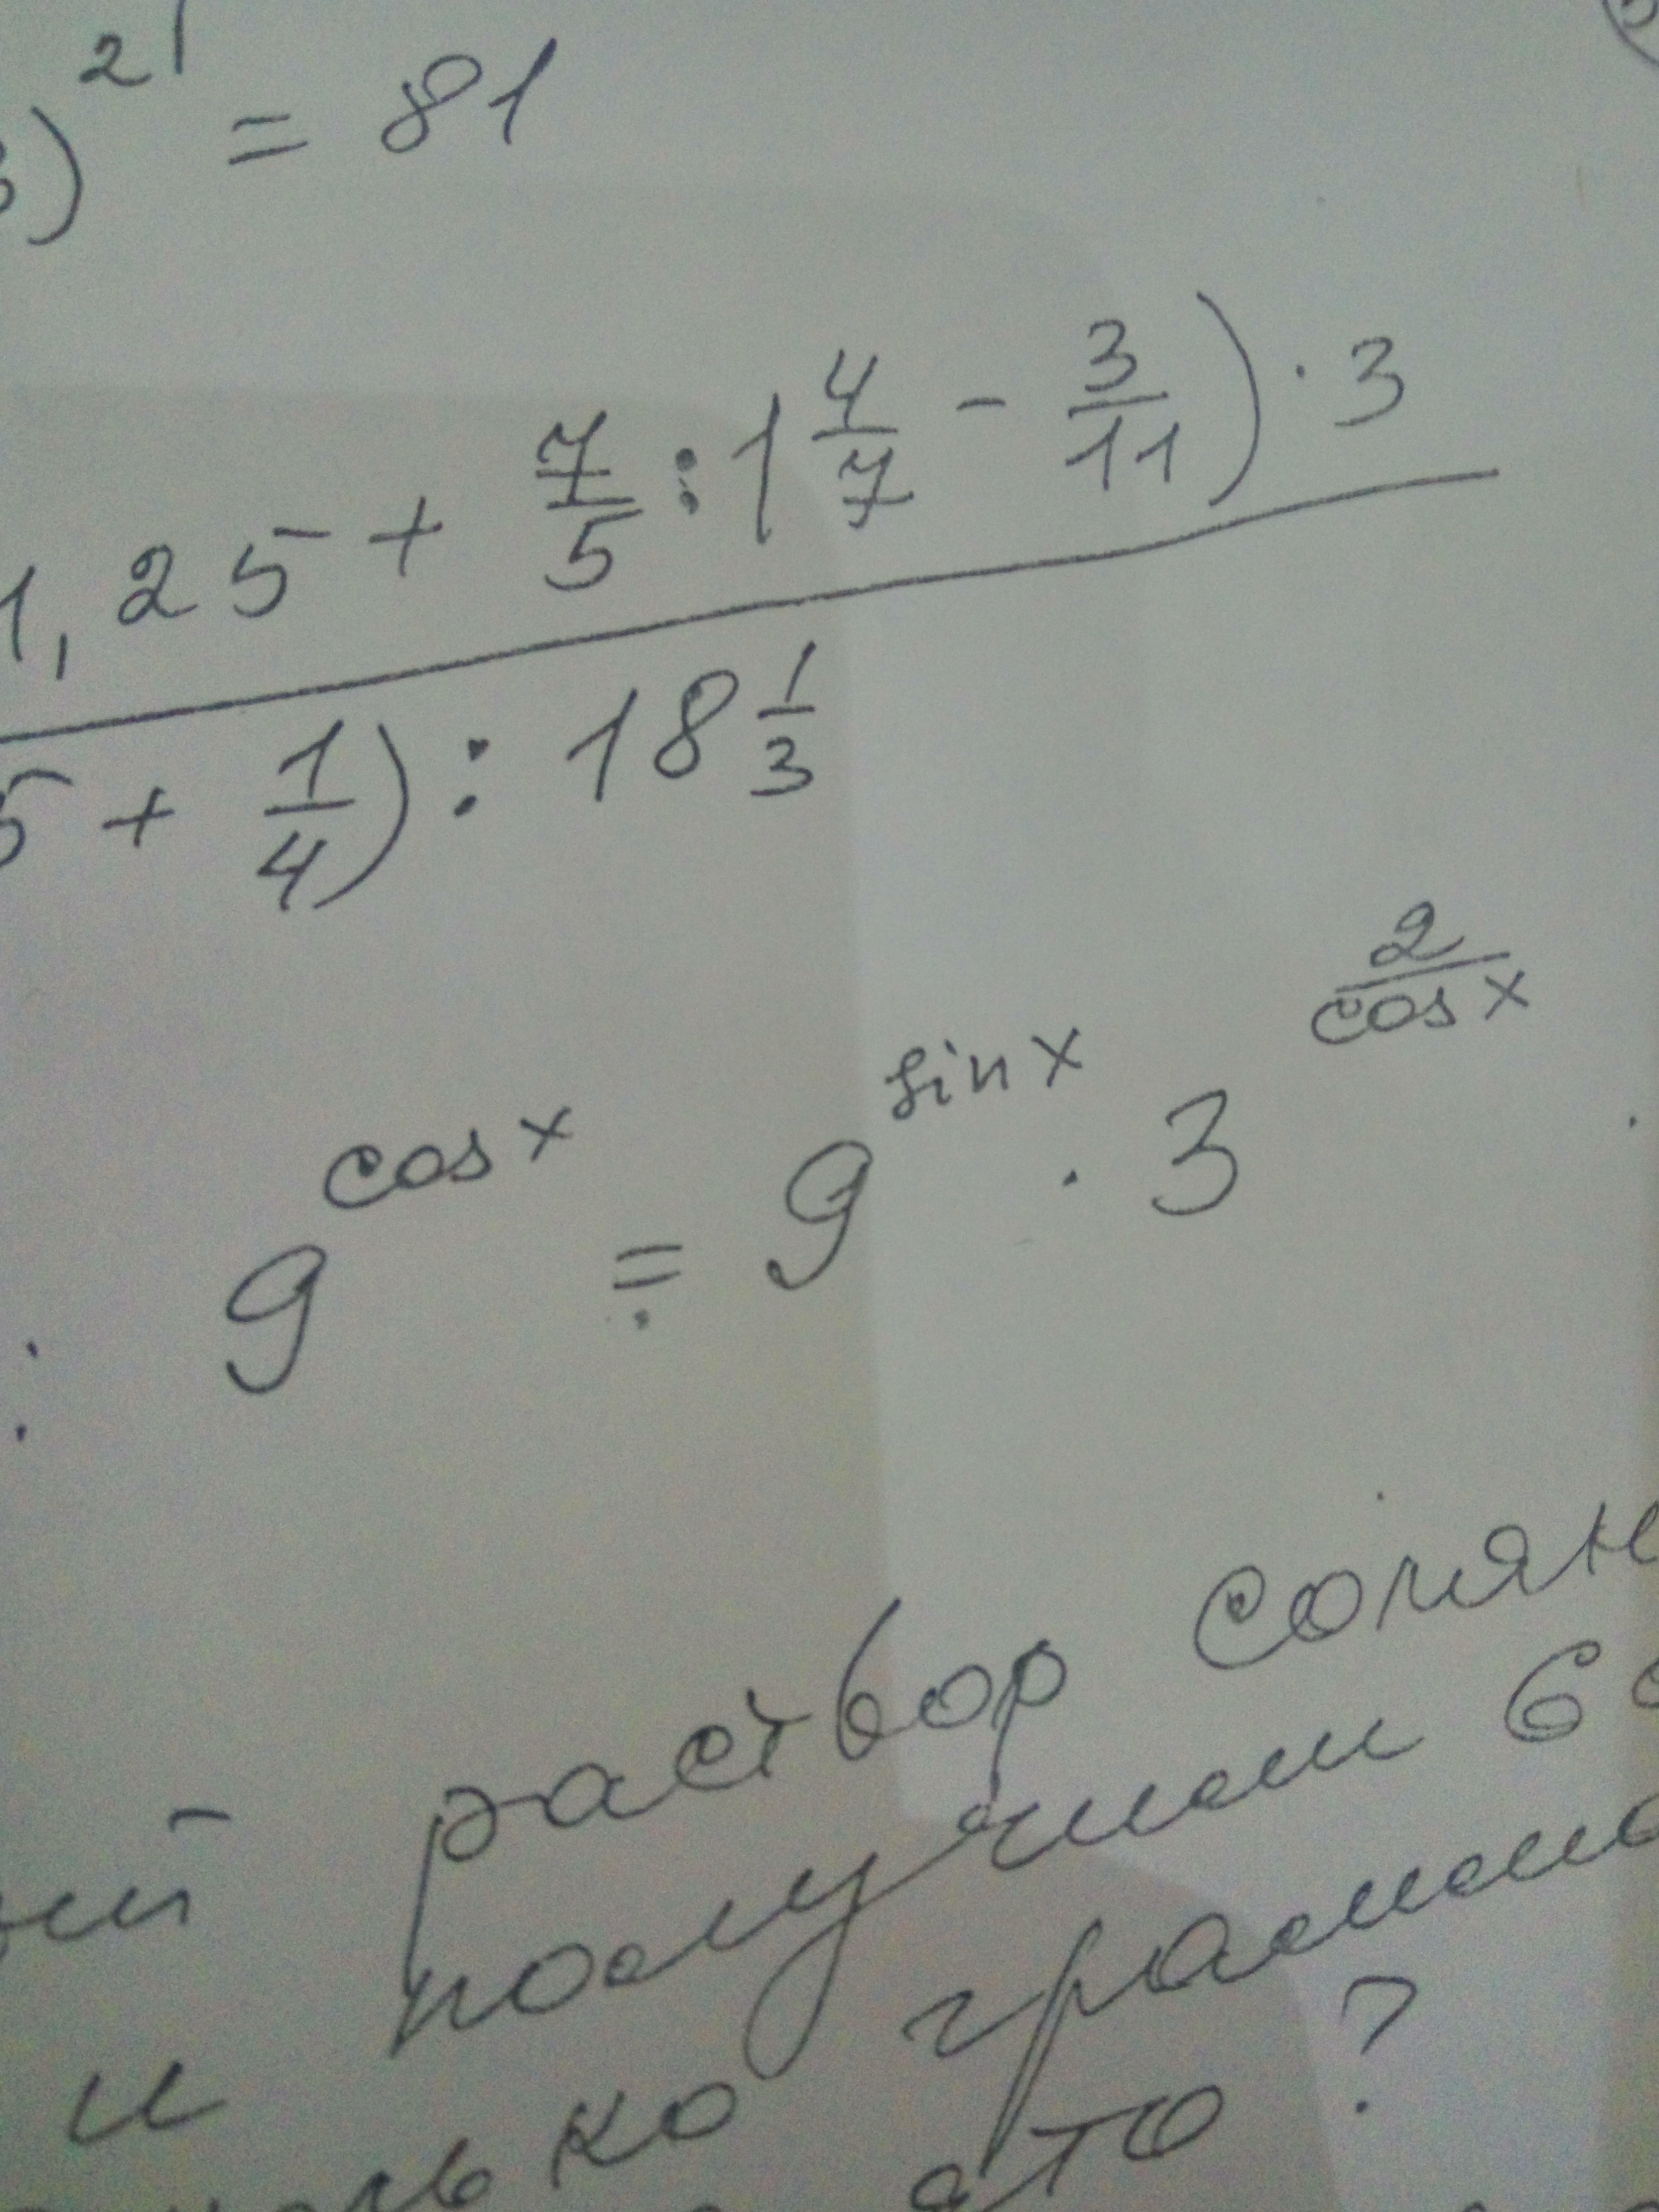 )² = 81
1,25 + 7/5 : 1 4/7 - 3/11) · 3
5 + 1/4) : 18 1/3
: 9^cos x = 9^sin x · 3^(2/cos x)
раствор солян
и получили 6
грамм
ято?